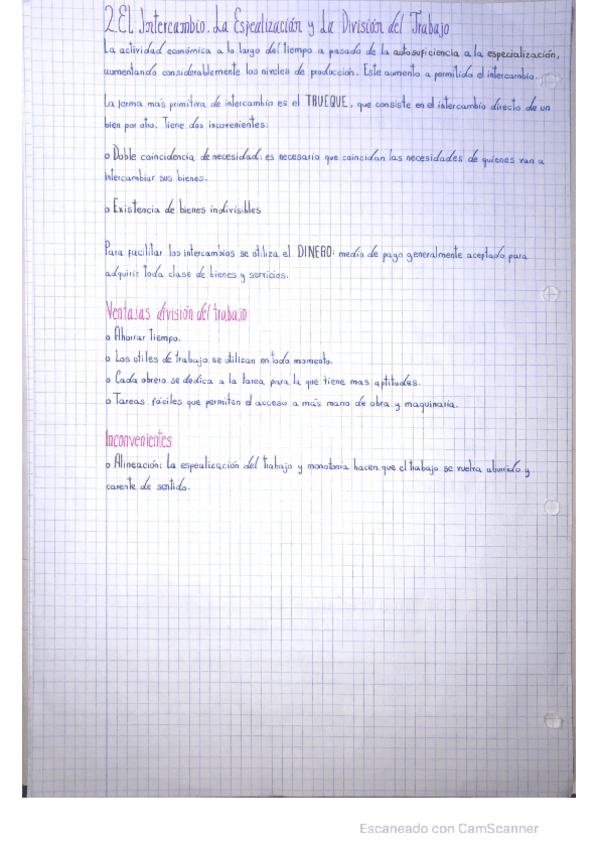 2.El Intercambio. La Espealización y La División del Trabajo
La actividad económica a lo largo del tiempo a pasado de la autosuficiencia a la especialización,
aumentando considerablemente los niveles de producción. Este aumento a permitido el intercambio.
La forma mas primitiva de intercambio es el TRUEQUE, que consiste en el intercambio directo de un
bien por otro. Tiene dos incovenientes:
o Doble coincidencia de necesidad: es necesario que coincidan las necesidades de quienes van a
intercambiar sus bienes.
o Existencia de bienes indivisibles
Para facilitar los intercambios se utiliza el DINERO: medio de pago generalmente aceptado para
adquirir toda clase de bienes y servicios.
Ventajas división del trabajo
o Ahorrar Tiempo.
o Los utiles de trabajo se utilizan en todo momento.
o Cada obrero se dedica a la tarea para la que tiene mas aptitudes.
o Tareas fáciles que permiten el acceso a más mano de obra y maquinaria.
Inconvenientes
o Alineación: la espealización del trabajo y monotonia hacen que el trabajo se vuelva aburrido y
carente de sentido.
Escaneado con CamScanner